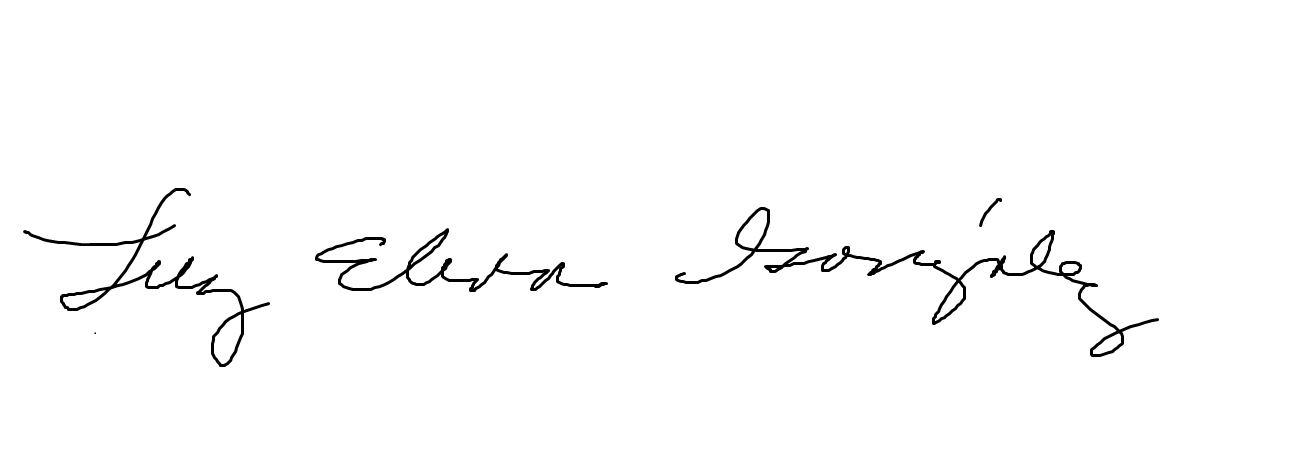 Luz Elva González